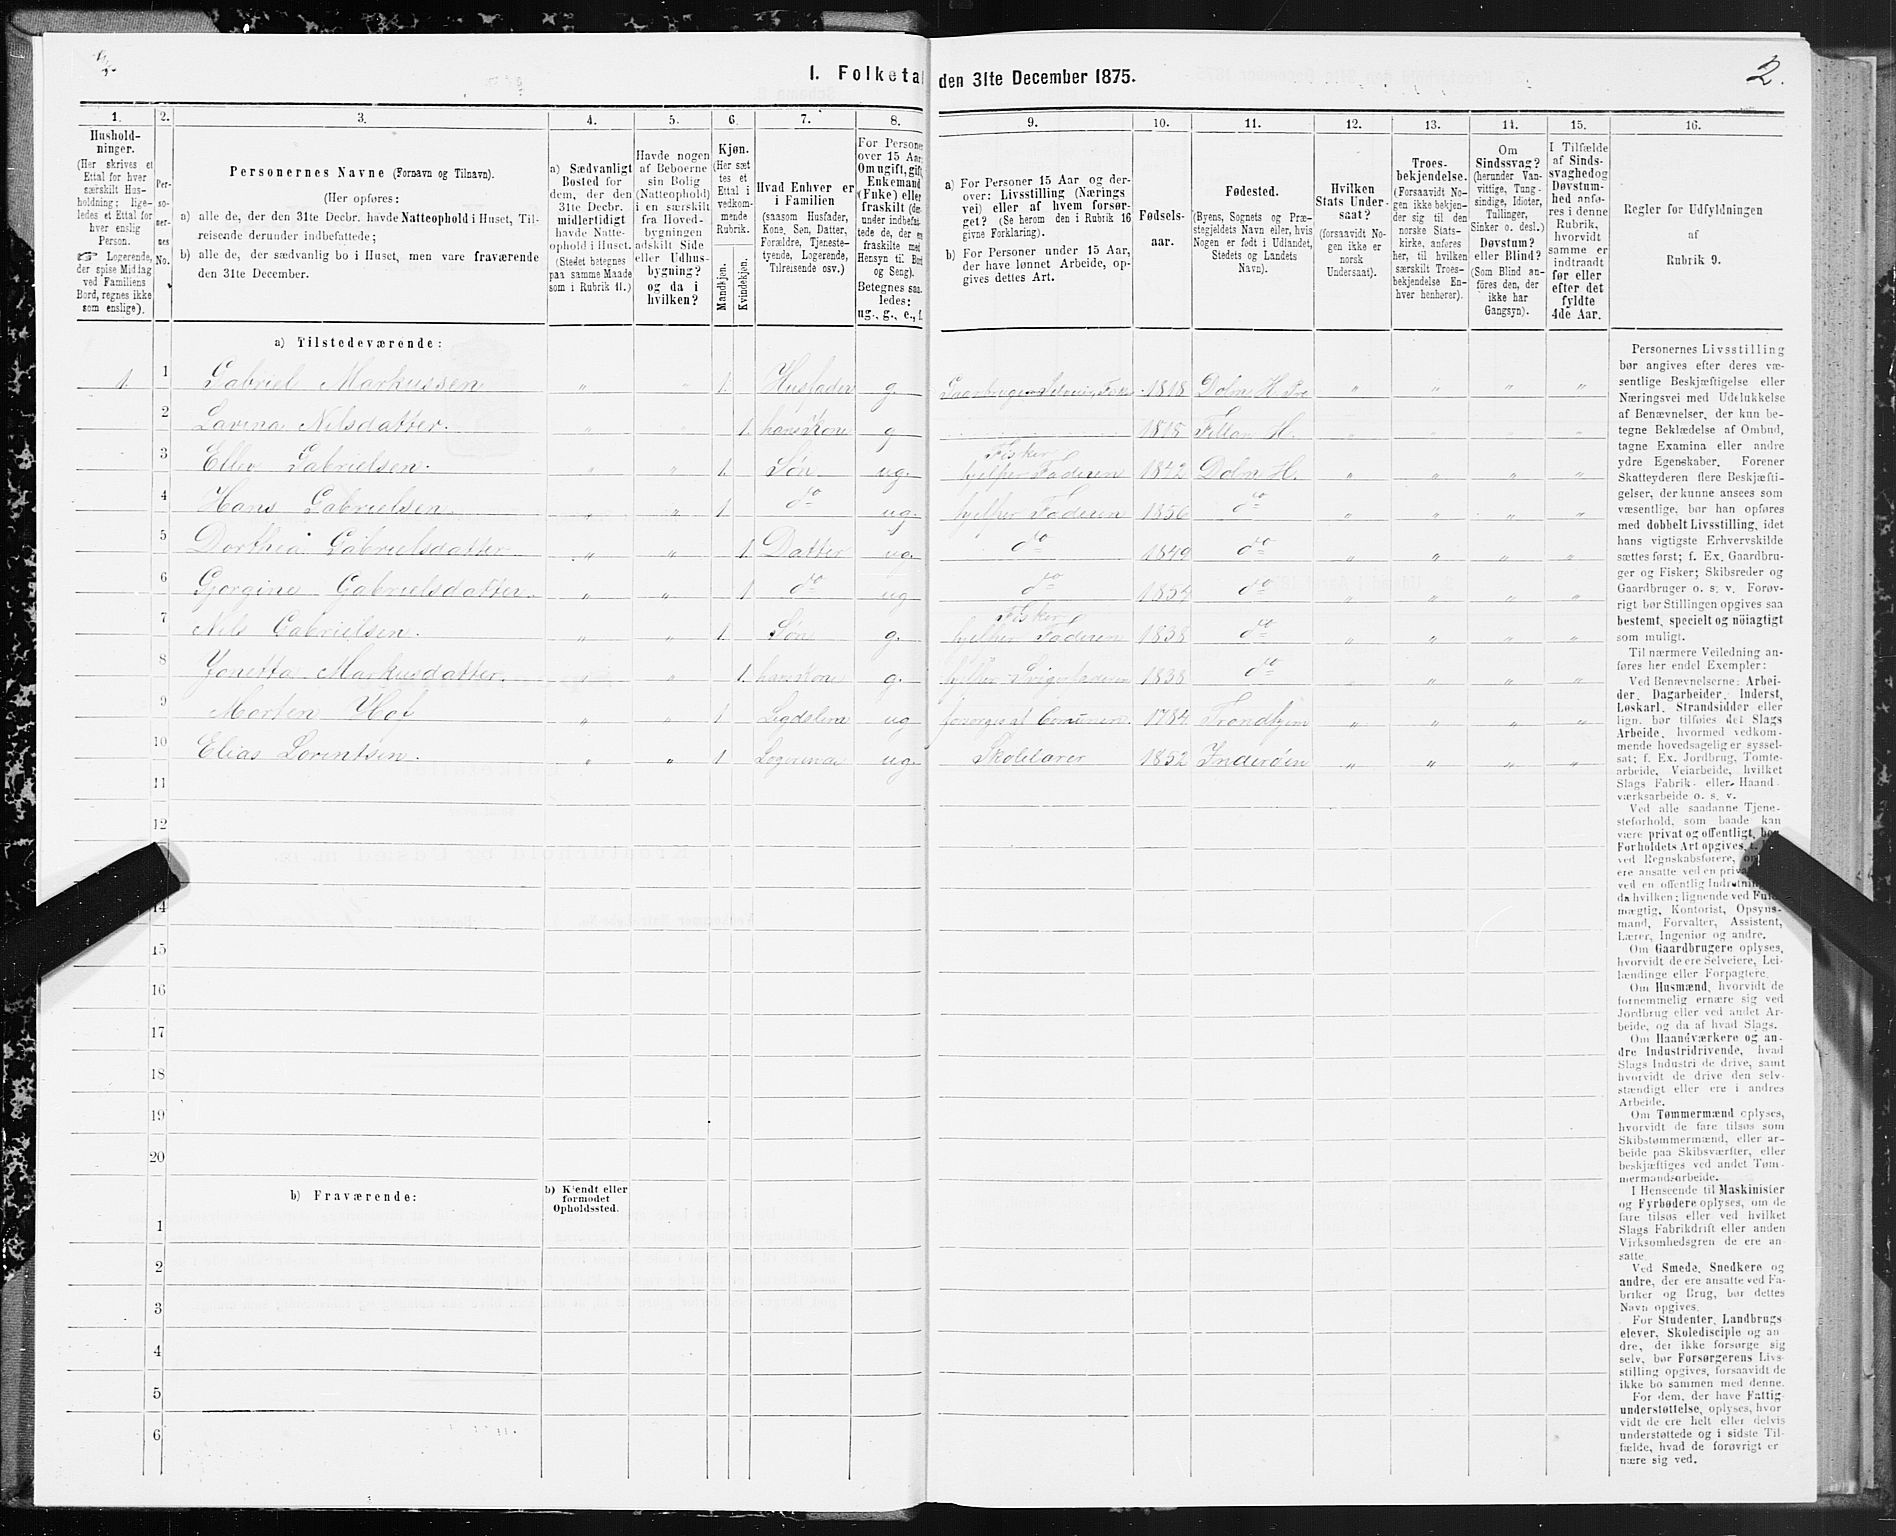 I. Folketal den 31te December 1875.
2.
1.
2.
3.
4.
5.
6.
7.
8.
9.
10.
11.
12.
13.
14.
15.
16.
Hushold-
ninger.
(Her skrives et
Ettal for hver
særskilt Hus-
holdning; lige-
ledes et Ettal for
hver enslig
Person.
☞ Logerende,
der spise Middag
ved Familiens
Bord, regnes ikke
som enslige).
Per-
so-
ner-
nes
No.
Personernes Navne (Fornavn og Tilnavn).
(Her opføres:
a) alle de, der den 31te Decbr. havde Natteophold i Huset, Til-
reisende derunder indbefattede;
b) alle de, der sædvanlig bo i Huset, men vare fraværende
den 31te December.
a) Sædvanligt
Bosted for
dem, der den
31te Decbr.
midlertidigt
havde Natte-
ophold i Huset.
(Stedet betegnes
paa samme Maade
som i Rubrik 11.)
Havde nogen
af Beboerne
sin Bolig
(Natteophold)
i en særskilt
fra Hoved-
bygningen
adskilt Side
eller Udhus-
bygning?
og da i
hvilken?
Kjøn.
(Her sæt
tes et
Ettal i
vedkom-
mende
Rubrik.
Mandkjøn.
Kvindekjøn.
Hvad Enhver er
i Familien
(saasom Husfader,
Kone, Søn, Datter,
Forældre, Tjeneste-
tyende, Logerende,
Tilreisende osv.)
For Persone
over 15 Aar:
Om ugift, gift,
Enkemand
(Enke) eller
fraskilt (der-
under indbefat-
tede de, der er
fraskilte med
Hensyn til Bord
og Seng).
Betegnes saa-
ledes:
ug., g., e., f.
a) For Personer 15 Aar og der-
over: Livsstilling (Nærings
vei) eller af hvem forsør-
get? (Se herom den i Rubrik 16
givne Forklaring).
b) For Personer under 15 Aar,
der have lønnet Arbeide, op-
gives dettes Art.
Fødsels-
aar.
Fødested.
(Byens, Sognets og Præ-
stegjeldets Navn eller, hvis
Nogen er født i Udlandet,
Stedets og Landets
Navn).
Hvilken
Stats Under-
saat?
(forsaavidt No-
gen ikke er
norsk
Undersaat).
Troes-
bekjendelse.
(Forsaavidt No-
gen ikke bekjen-
der sig til den
norske Stats-
kirke, anføres
her, til hvilken
særskilt Troes-
bekjendelse En-
hver henhører).
Om
Sindssvag?
(herunder Van-
vittige, Tung-
sindige, Idioter,
Tullinger,
Sinker o. desl.)
Døvstum?
eller Blind?
(Som Blind an-
føres den, der
ikke har
Gangsyn).
I Tilfælde
af Sinds-
svaghed og
Døvstum-
hed anfø-
res i denne
Rubrik,
hvorvidt
samme er
indtraadt
før eller
efter det
fyldte
4de Aar.
Regler for Udfyldningen
af
Rubrik 9.
a) Tilstedeværende:
1. 1 Gabriel Markussen " " 1. Husfader g. 1818 Dolm H. " " " "
2 Lavina Nilsdatter. " " 1. hans Kone g 1815 Fillan H. " " " "
Fisker
3 Ellev Gabrielsen. " " 1. Søn ug. hjelper Faderen 1842 Dolm H. " " " "
4 Hans Gabrielsen " " 1 do ug. hjelper Faderen 1856 do " " " "
5 Dorthea Gabrielsdatter " " 1. Datter ug. do 1849 do " " " "
6 Gjorgine Gabrielsdatter. " " 1. do ug do 1854 do " " " "
Fisker
7 Nils Gabrielsen. " " 1. Søn g. hjelper Faderen 1838 do " " " "
8 Jonetta Markusdatter. " " 1. hans Kone g. hjelper Svigerfaderen 1838 do " " " "
9 Morten Hof " " 1 Legdslem ug forsørges af Comunen. 1784. Trondhjem " " " "
10 Elias Lorentsen. " " 1. Logerende ug. Skolelærer 1852 Inderøen " " " "
11
12
14
15
16
17
18
19
20
b) Fraværende:
b) Kjendt eller
formodet
Opholdssted.
1
2
3
4
5
6
Personernes Livsstilling
bør angives efter deres væ-
sentlige Beskjæftigelse eller
Næringsvei med Udelukkelse
af Benævnelser, der kun be-
tegne Beklædelse af Ombud,
tagne Examina eller andre
ydre Egenskaber. Forener
Skatteyderen flere Beskjæfti-
gelser, der kunne ansees som
væsentlige, bør han opføres
med dobbelt Livsstilling, idet
hans vigtigste Erhvervskilde
sættes først; f. Ex. Gaardbru-
ger og Fisker; Skibsreder og
Gaardbruger o. s. v. Forøv-
rigt bør Stillingen opgives saa
bestemt, specielt og nöiagtigt
som muligt.
Til nærmere Veiledning an-
føres her endel Exempler:
Ved Benævnelserne: Arbei-
der, Dagarbeider, Inderst,
Løskarl, Strandsidder eller
lign. bør tilføies det Slags
Arbeide, hvormed vedkom-
mende hovedsagelig er syssel-
sat; f. Ex. Jordbrug, Tomte-
arbeide, Veiarbeide, hvilket
Slags Fabrik- eller Haand-
værksarbeide o. s. v.
Ved alle saadanne Tjene-
steforhold, som baade kan
være privat og offentligt, bør
Forholdets Art opgives,
ved Regnskabsførere,
ere ansatte ved en
ved en offentlig
da hvilken; lignende ved Fuld-
mægtig, Kontorist, Opsyns-
mand, Forvalter, Assistent,
Lærer, Ingeniør og andre.
Om Gaardbrugere oplyses,
hvorvidt de ere Selveiere, Lei-
lændinge eller Forpagtere.
Om Husmænd, hvorvidt de
fornemmelig ernære sig ved
Jordbrug eller ved andet Ar-
beide, og da af hvad Slags.
Om Haandværkere og an-
dre Industridrivende, hvad
Slags Industri de drive, samt
hvorvidt de drive den selv-
stændigt eller ere i andres
Arbeide.
Om Tømmermænd oplyses,
hvorvidt de fare tilsøs som
Skibstømmermænd, eller ar-
beide paa Skibsværfter, eller
beskjæftiges ved andet Tøm-
mermandsarbeide.
I Henseende til Maskinister
og Fyrbødere oplyses, om de
fare tilsøs eller ved hvilket
Slags Fabrikdrift eller anden
Virksomhedsgren de ere an-
satte.
Ved Smede, Snedkere og
andre, der ere ansatte ved Fa-
briker og Brug, bør dettes
Navn opgives.
For Studenter, Landbrugs-
elever, Skoledisciple og an-
dre, der ikke forsørge sig
selv, bør Forsørgerens Livs-
stilling opgives, forsaavidt de
ikke bo sammen med denne.
For dem, der have Fattig-
understøttelse, oplyses, hvor-
vidt de ere helt eller delvis
understøttede og i sidste Til-
fælde, hvad de forøvrigt er
nære sig ved.